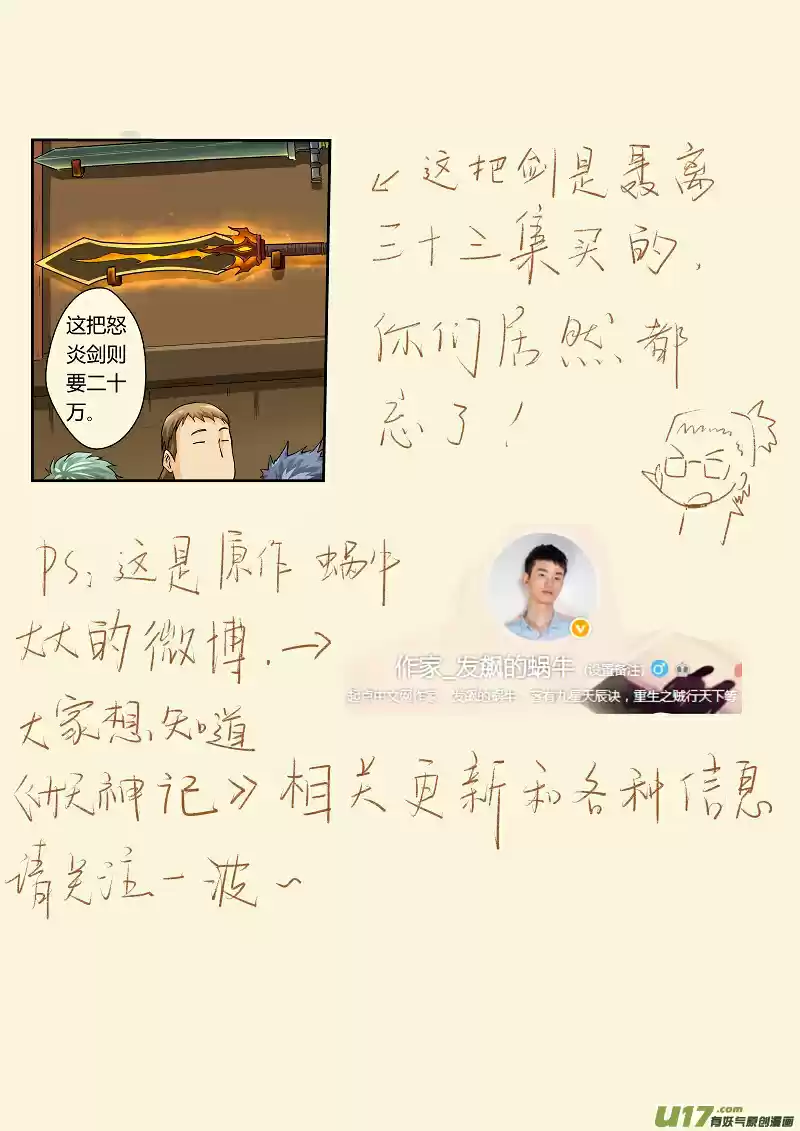 这把怒
炎剑则
要二十
万。
↙这把剑是聂离
三十三集买的,
你们居然都
忘了!
PS:这是原作 蜗牛
大大的微博.→
作家_发飙的蜗牛 (设置备注)
起点中文网作家 发飙的蜗牛 著有九星天辰诀,重生之贼行天下等
大家想知道
《妖神记》相关更新和各种信息
请关注一波~
U17.com
有妖气原创漫画